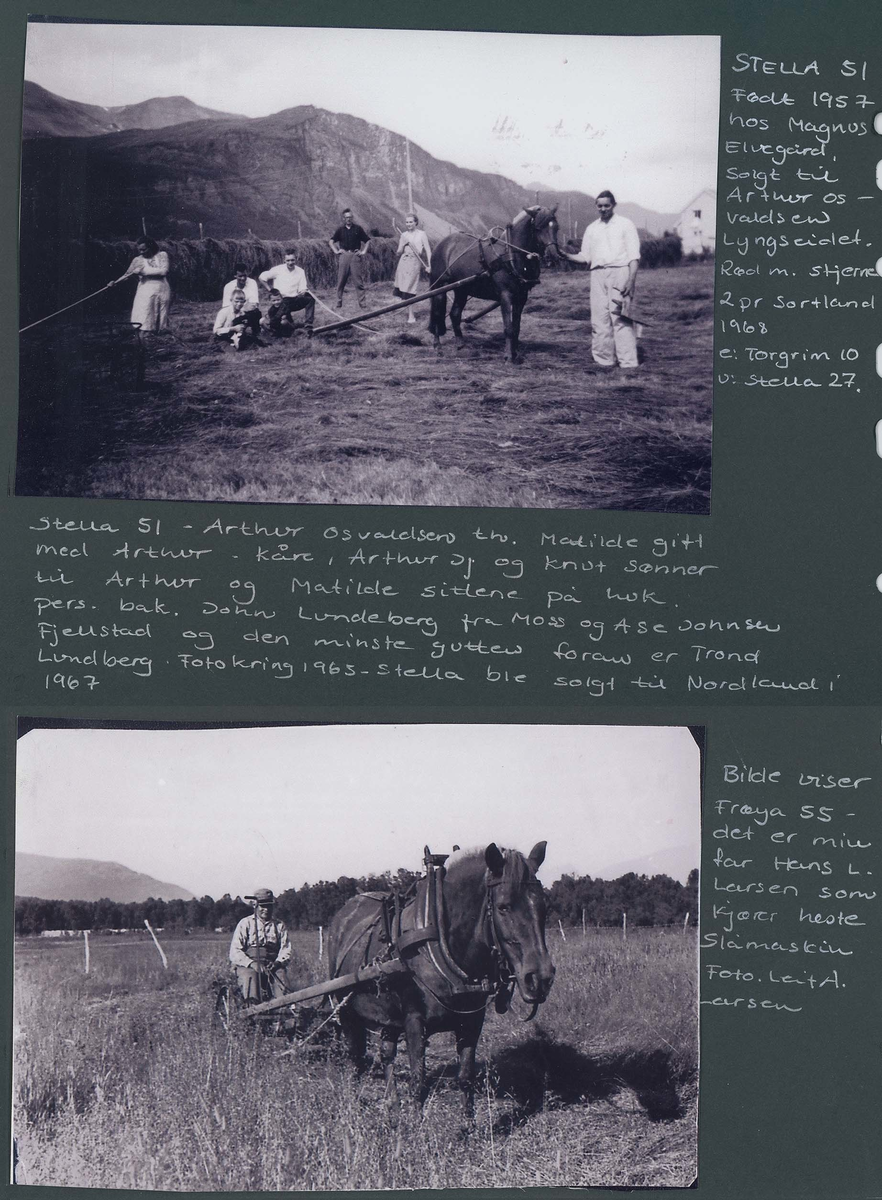 STELLA 51
Født 1957
hos Magnus
Elvegård.
Solgt til
Arthur Os-
valdsen
Lyngseidet.
Rød m. stjerne
2 pr Sortland
1968
e: Torgrim 10
u: Stella 27.
Stella 51 - Arthur Osvaldsen tv. Matilde gift
med Arthur - Kåre, Arthur Jj og Knut sønner
til Arthur og Matilde sittene på huk.
pers. bak. John Lundeberg fra Moss og Åse Johnsen
Fjellstad og den minste gutten foran er Trond
Lundberg. Foto kring 1965 - Stella ble solgt til Nordland i
1967
Bilde viser
Frøya 55 -
det er min
far Hans L.
Larsen som
kjører heste
Slåmaskin
Foto. Leif A.
Larsen